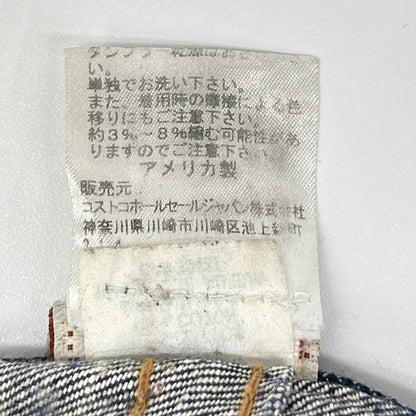 タンブラー乾燥はお
い。
単独でお洗い下さい。
また、着用時の摩擦による色
移りにもご注意下さい。
約3%~8%縮む可能性があ
りますのでご注意下さい。
アメリカ製
販売元
コストコホールセールジャパン株式会社
神奈川県川崎市川崎区池上新町